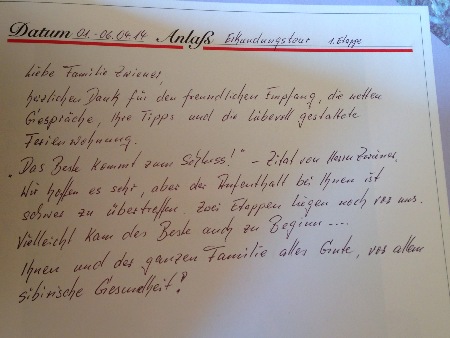 Datum 01.-06.04.14 Anlaß Erkundungstour 1. Etappe
Liebe Familie Zwiener,
herzlichen Dank für den freundlichen Empfang, die netten
Gespräche, Ihre Tipps und die liebevoll gestaltete
Ferienwohnung.
„Das Beste kommt zum Schluss!" – Zitat von Herrn Zwiener.
Wir hoffen es sehr, aber der Aufenthalt bei Ihnen ist
schwer zu übertreffen. Zwei Etappen liegen noch vor uns.
Vielleicht kam das Beste auch zu Beginn ....
Ihnen und der ganzen Familie alles Gute, vor allem
sibirische Gesundheit!